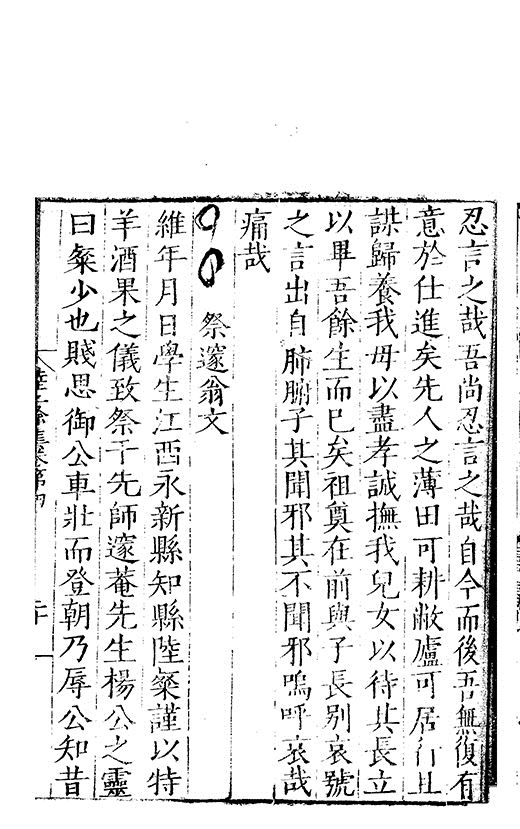 忍言之哉吾尚忍言之哉自今而後吾無復有
意於仕進矣先人之薄田可耕敝廬可居行且
謀歸養我母以盡孝誠撫我兒女以待其長立
以畢吾餘生而已矣祖奠在前與子長别哀號
之言出自肺腑子其聞邪其不聞邪嗚呼哀哉
痛哉
祭邃翁文
維年月日學生江西永新縣知縣陸粲謹以特
羊酒果之儀致祭于先師邃菴先生楊公之靈
曰粲少也賤思御公車壯而登朝乃辱公知昔
陸子餘集卷第四
二十一